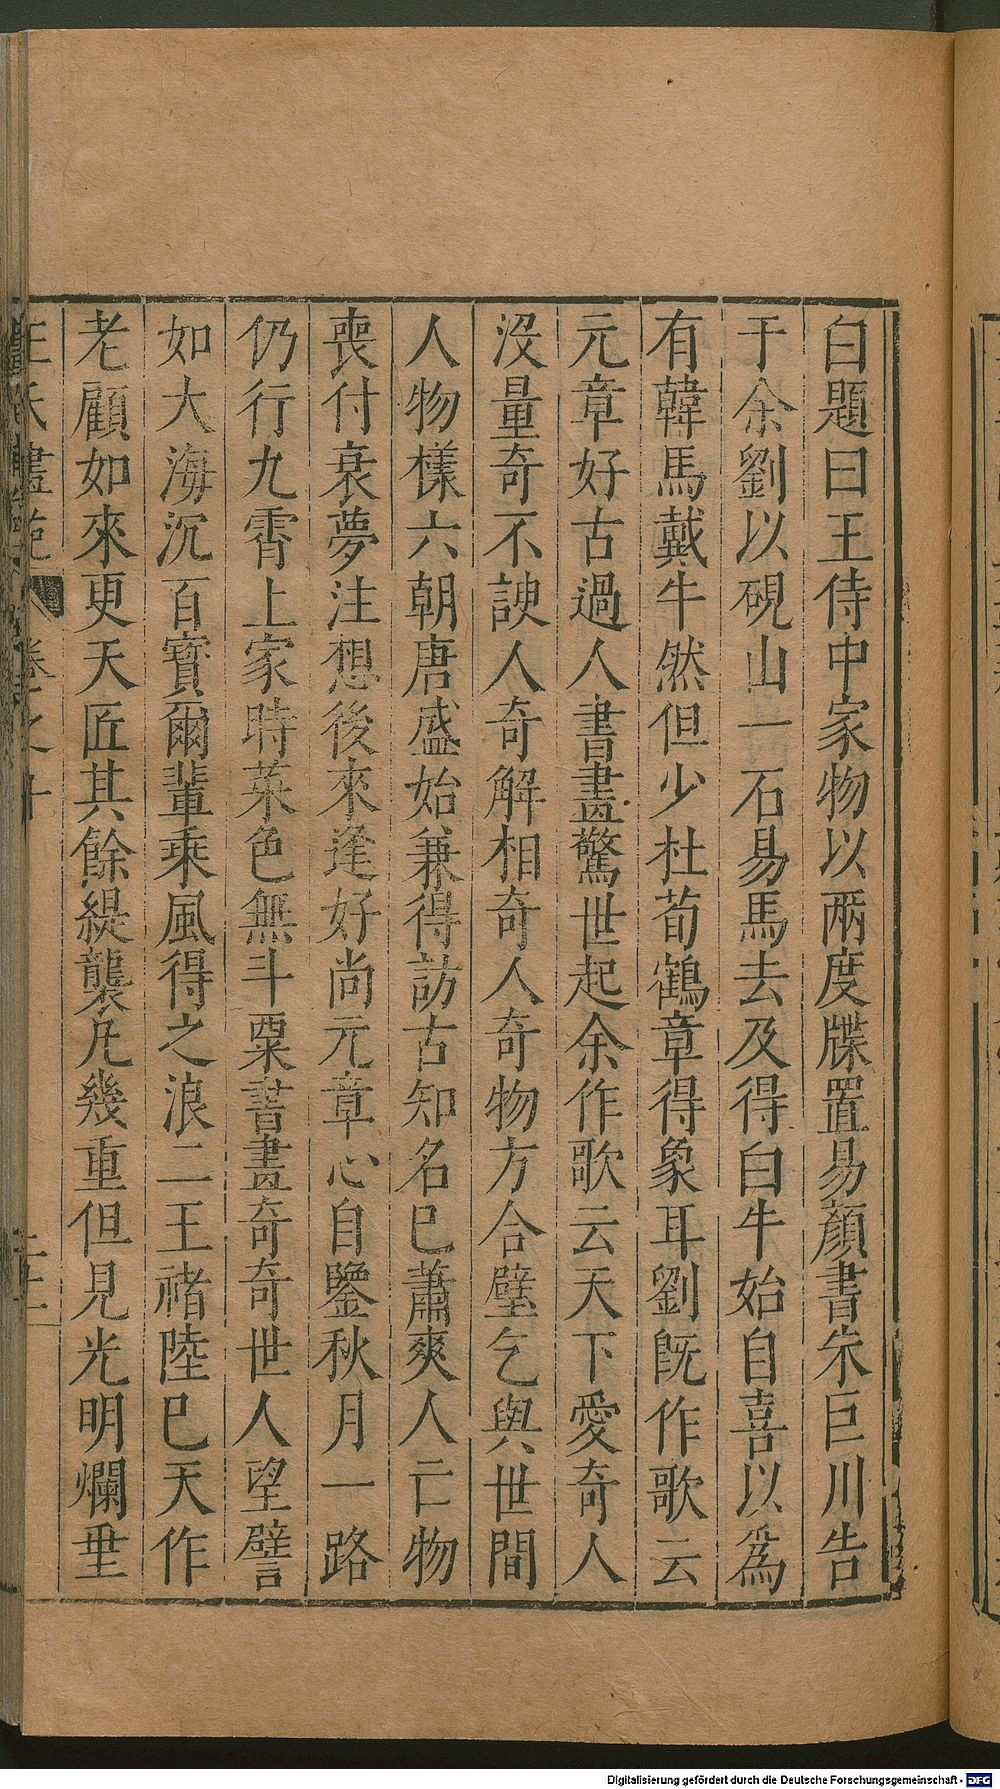 白題曰王侍中家物以兩度牒置易顏書朱巨川告
于余劉以硯山一石易馬去及得白牛始自喜以爲
有韓馬戴牛然但少杜荀鶴章得象耳劉旣作歌云
元章好古過人書畫驚世起余作歌云天下愛奇人
沒量奇不諛人奇解相奇人奇物方合壁乞與世間
人物樣六朝唐盛始兼得訪古知名已蕭爽人亡物
喪付衰夢注想後來逢好尚元章心自鑒秋月一路
仍行九霄上家時萊色無斗粟書畫奇奇世人望譬
如大海沉百寶爾輩乘風得之浪二王褚陸已天作
老顧如來更天匠其餘緹襲凡幾重但見光明爛垂
王氏畫苑 卷之十
Digitalisierung gefördert durch die Deutsche Forschungsgemeinschaft - DFG